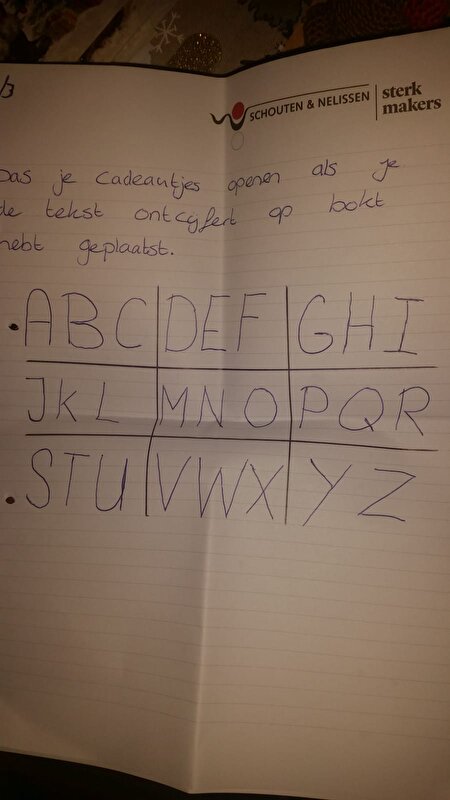 /3
SCHOUTEN & NELISSEN | sterk makers
pas je cadeautjes openen als je
de tekst ontcijfert op bokt
hebt geplaatst.
ABC | DEF | GHI
JKL | MNO | PQR
STU | VWX | YZ